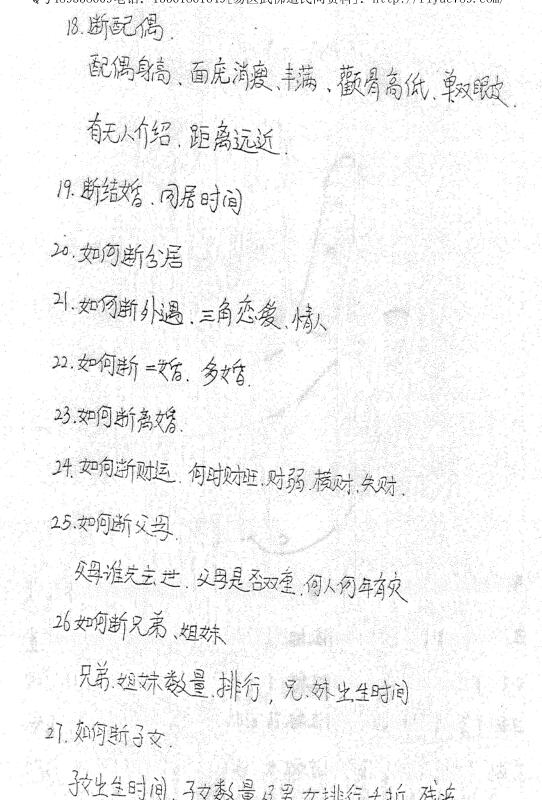 18.断配偶.
配偶身高、面庞消瘦、丰满、颧骨高低、单双眼皮.
有无人介绍、距离远近.
19.断结婚、同居时间
20.如何断分居
21.如何断外遇、三角恋爱、情人
22.如何断二婚、多婚.
23.如何断离婚.
24.如何断财运.何时财旺.财弱.横财.失财.
25.如何断父母.
父母谁先去世.父母是否双重.何人何年有灾
26如何断兄弟、姐妹
兄弟.姐妹数量.排行,兄.妹出生时间
27.如何断子女.
子女出生时间.子女数量及男女排行